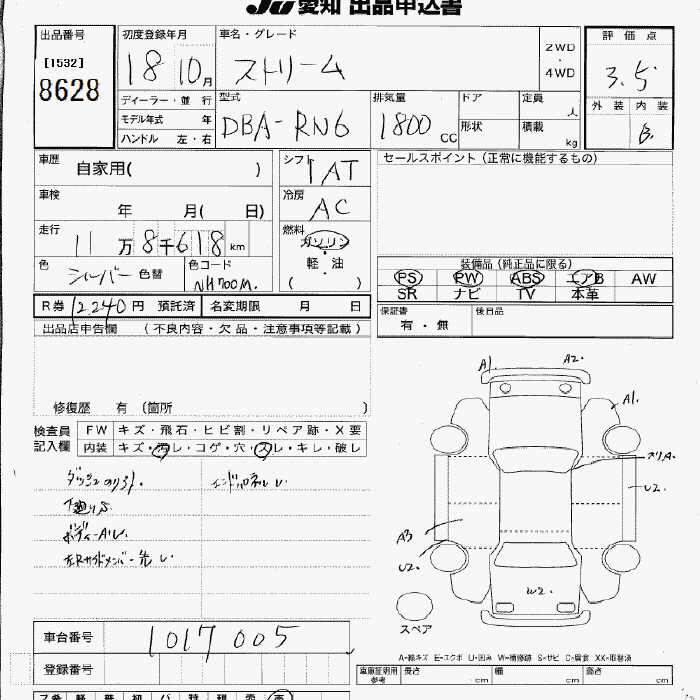 JU 愛知 出品申込書
出品番号 初度登録年月 車名・グレード 評価点
[1532] 18 10月 ストリーム 2WD・4WD 3.5
8628 ディーラー・並行 型式 排気量 ドア 定員 人 外装 内装
モデル年式 年 DBA-RN6 1800 CC 形状 積載 kg B
ハンドル 左・右
車歴 自家用( ) シフト IAT セールスポイント (正常に機能するもの)
車検 年 月( 日) 冷房 AC
走行 11万8千618km 燃料 ガソリン・軽・油 ( )
色 シルバー 色替 色コード NH700M. 装備品 (純正品に限る)
PS PW ABS エアB AW
SR ナビ TV 本革
R券 12,240円 預託済 名変期限 月 日 保証書 有・無 後日品
出品店申告欄 (不良内容・欠品・注意事項等記載)
修復歴 有 (箇所 )
検査員記入欄 FW キズ・飛石・ヒビ割・リペア跡・X要
内装 キズ・汚レ・コゲ・穴・スレ・キレ・破レ
A1 A2. A1.
スリA.
U2.
A3
U2.
W2.
スペア
車台番号 1017005
登録番号
A=線キズ E=エクボ U=凹み W=補修跡 S=サビ C=腐食 XX=取替済
車庫証明用参考 長さ cm 幅 cm 高さ cm